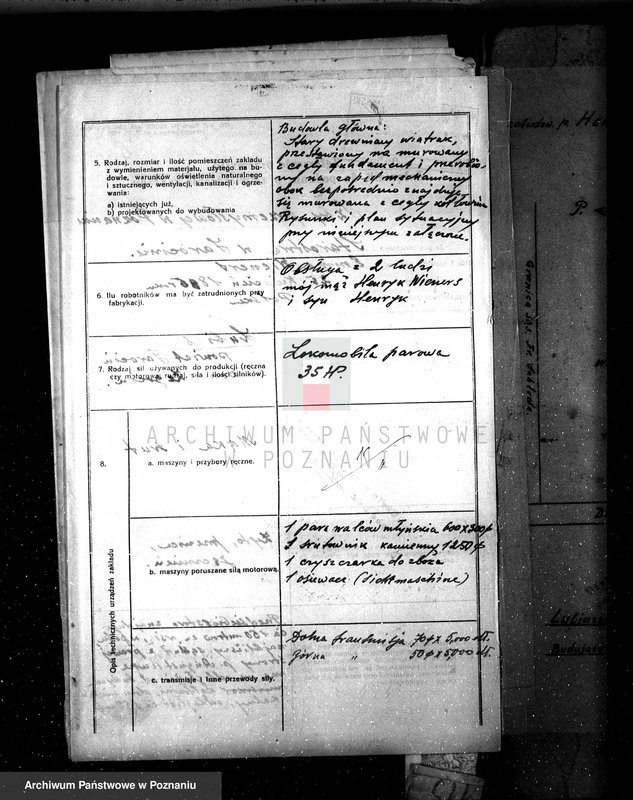 5. Rodzaj, rozmiar i ilość pomieszczeń zakładu
z wymienieniem materjału, użytego na bu-
dowie, warunków oświetlenia naturalnego
i sztucznego, wentylacji, kanalizacji i ogrze-
wania:
a) istniejących już,
b) projektowanych do wybudowania
Budowla główna:
Stary drewniany wiatrak,
przestawiony na murowany
z cegły fundament i przerobio-
ny na zapęd mechaniczny
obok bezpośrednio znajduje
się murowana z cegły kotłownia
Rysunki i plan sytuacyjny
przy niniejszym załączone.
6. Ilu robotników ma być zatrudnionych przy
fabrykacji.
Obsługa z 2 ludzi
mój mąż Henryk Wieners
i syn Henryk
7. Rodzaj sił używanych do produkcji (ręczna
czy motorowa; rodzaj, siła i ilości silników).
Lokomobila parowa
35 HP.
8.
Opis technicznych urządzeń zakładu
a. maszyny i przybory ręczne.
b. maszyny poruszane siłą motorową.
1 para walców młyńskich 600x300ø
1 śrutownik kamienny 1250ø
1 czyszczarka do zboża
1 osiewacz (Sichtmaschine)
c. transmisje i inne przewody siły.
Dolna transmisja 70ø x 5,000 dł.
Górna " 50ø x 5,000 dł.
ARCHIWUM PAŃSTWOWE
W POZNANIU
P.
Budując
Archiwum Państwowe w Poznaniu